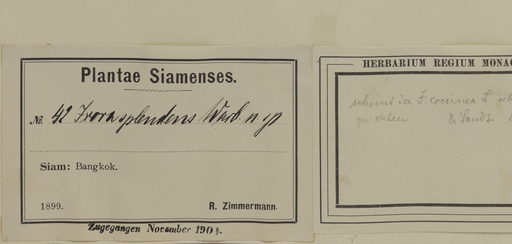 Plantae Siamenses.
№ 42 Ixora splendens Warb. n sp
Siam: Bangkok.
1899.
R. Zimmermann
Zugegangen November 1901.
HERBARIUM REGIUM MONAC
scheint der I. coccinea L.
zu